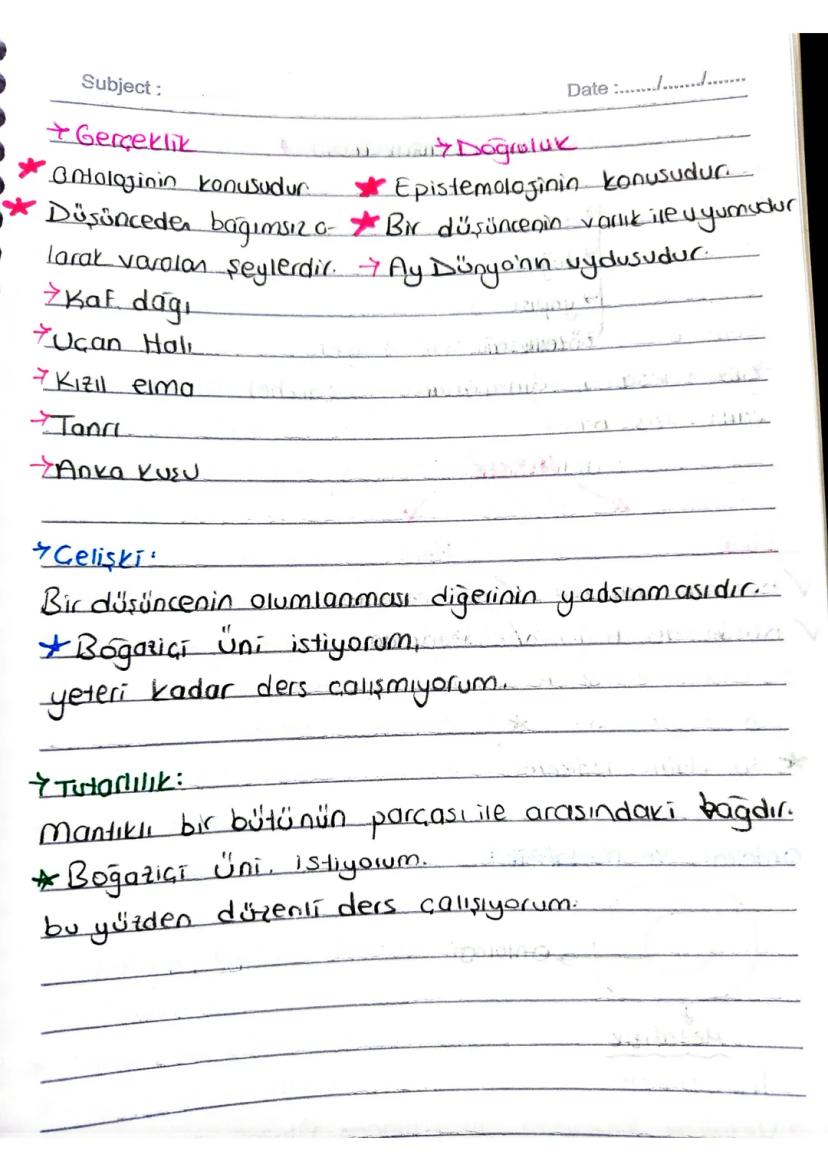 Subject :
Date :......./......./.......
→ Gerçeklik
★ Ontolojinin konusudur.
★ Düşünceden bağımsız o-
larak varolan şeylerdir.
→ Kaf dağı
→ Uçan Halı
→ Kızıl elma
→ Tanrı
→ Anka kuşu
→ Doğruluk
★ Epistemolojinin konusudur.
★ Bir düşüncenin varlık ile uyumudur
→ Ay Dünya'nın uydusudur.
→ Çelişki:
Bir düşüncenin olumlanması diğerinin yadsınmasıdır.
★ Boğaziçi Üni istiyorum,
yeteri kadar ders çalışmıyorum.
→ Tutarlılık:
Mantıklı bir bütünün parçası ile arasındaki bağdır.
★ Boğaziçi Üni. istiyorum.
bu yüzden düzenli ders çalışıyorum.